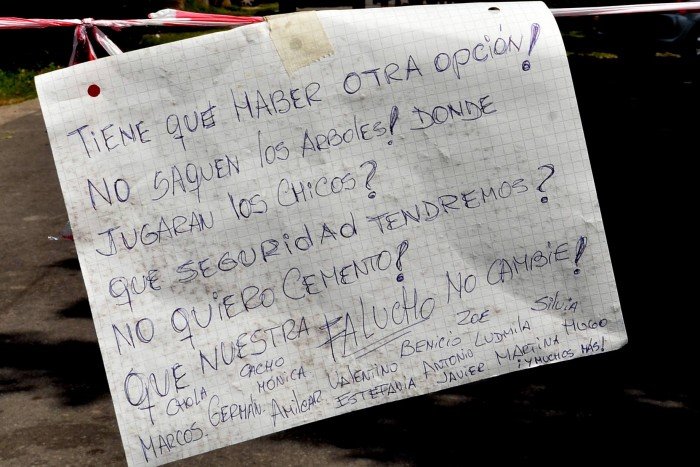 TIENE QUE HABER OTRA OPCIÓN!
NO SAQUEN LOS ARBOLES! DONDE
JUGARAN LOS CHICOS?
QUE SEGURIDAD TENDREMOS?
NO QUIERO CEMENTO!
QUE NUESTRA FALUCHO NO CAMBIE!
Y CHOLA CACHO MONICA. BENICIO ZOE SILVIA
MARCOS. GERMÁN. AMILCAR VALENTINO ANTONIO LUDMILA HUGO
ESTEFANIA JAVIER MARTINA
¡Y MUCHOS MÁS!